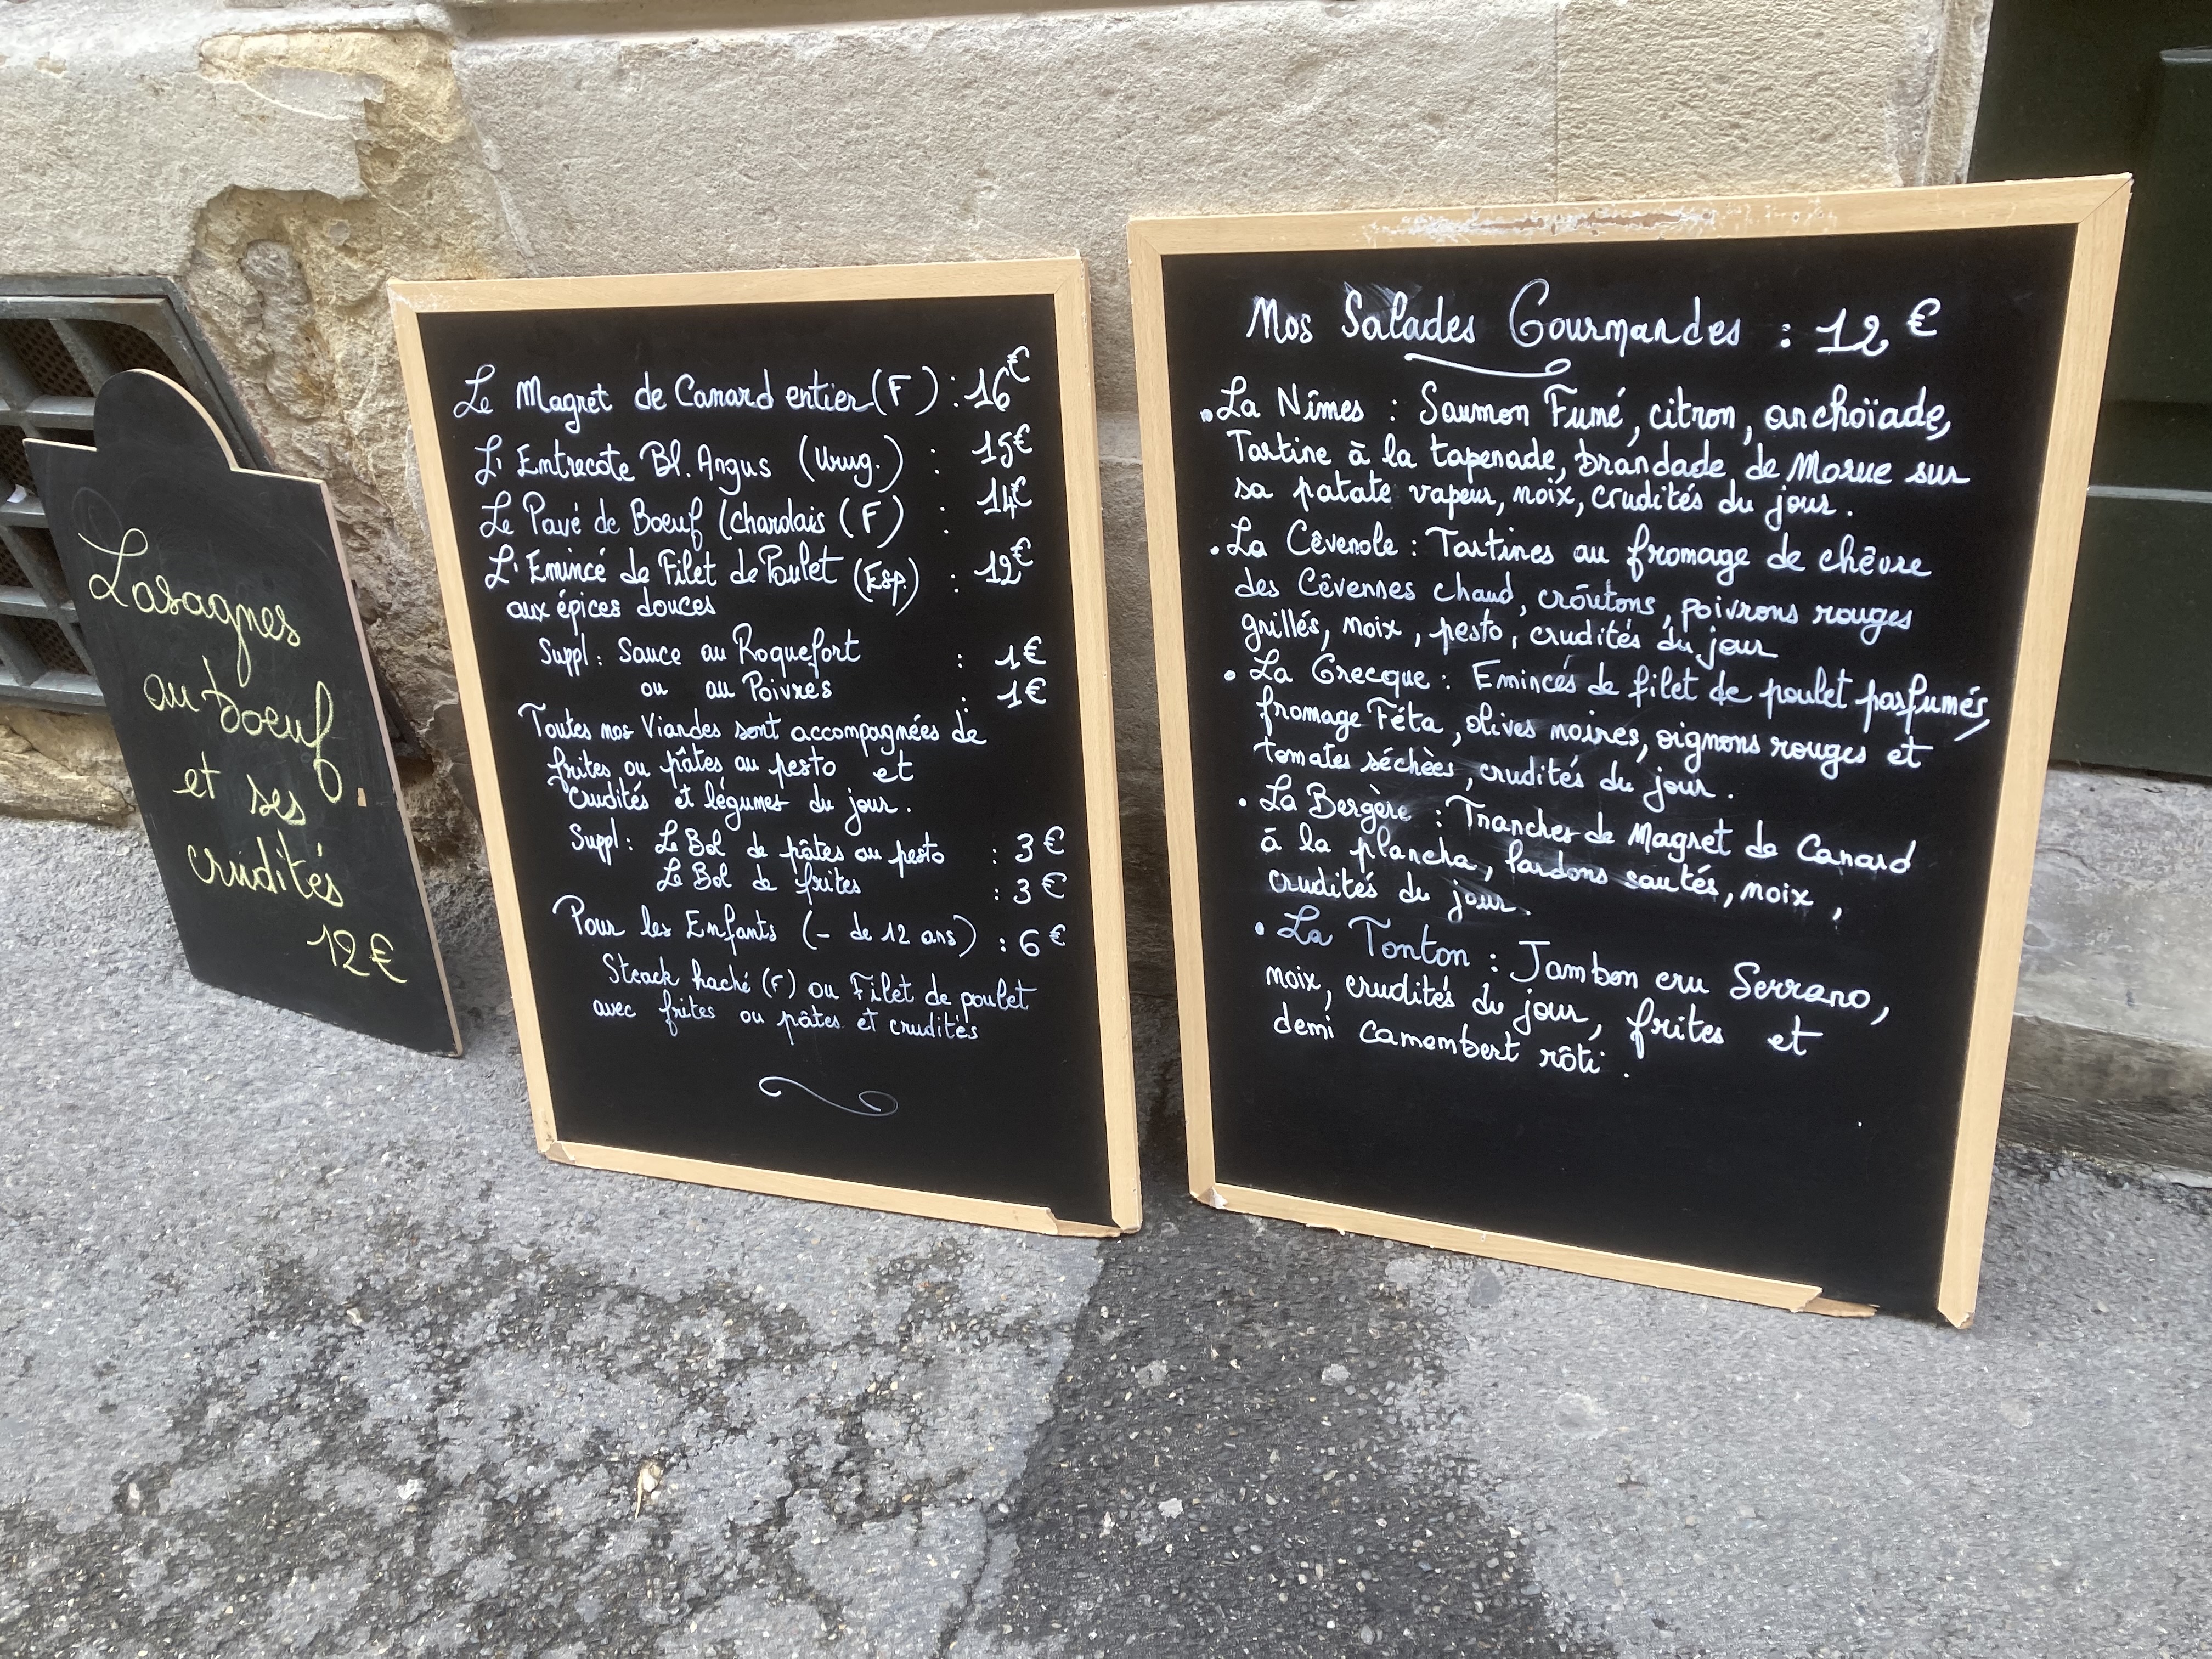 Lasagnes
au boeuf
et ses
crudités
12€
Le Magret de Canard entier (F) : 16€
L'Entrecote Bl. Angus (Urug.) : 15€
Le Pavé de Boeuf (Charolais (F) : 14€
L'Emincé de Filet de Poulet (Esp.) : 12€
aux épices douces
Suppl : Sauce au Roquefort : 1€
ou au Poivres : 1€
Toutes nos Viandes sont accompagnées de
frites ou pâtes au pesto et
Crudités et légumes du jour.
Suppl : Le Bol de pâtes au pesto : 3€
Le Bol de frites : 3€
Pour les Enfants (- de 12 ans) : 6€
Steack haché (F) ou Filet de poulet
avec frites ou pâtes et crudités
Nos Salades Gourmandes : 12€
• La Nîmes : Saumon Fumé, citron, anchoïade,
Tartine à la tapenade, brandade de Morue sur
sa patate vapeur, noix, crudités du jour.
• La Cêvenole : Tartines au fromage de chêvre
des Cêvennes chaud, croûtons, poivrons rouges
grillés, noix, pesto, crudités du jour
• La Grecque : Emincés de filet de poulet parfumés,
fromage Féta, olives noires, oignons rouges et
tomates séchèes, crudités du jour.
• La Bergère : Tranches de Magret de Canard
à la plancha, lardons sautés, noix,
crudités du jour.
• La Tonton : Jambon cru Serrano,
noix, crudités du jour, frites et
demi camembert rôti.